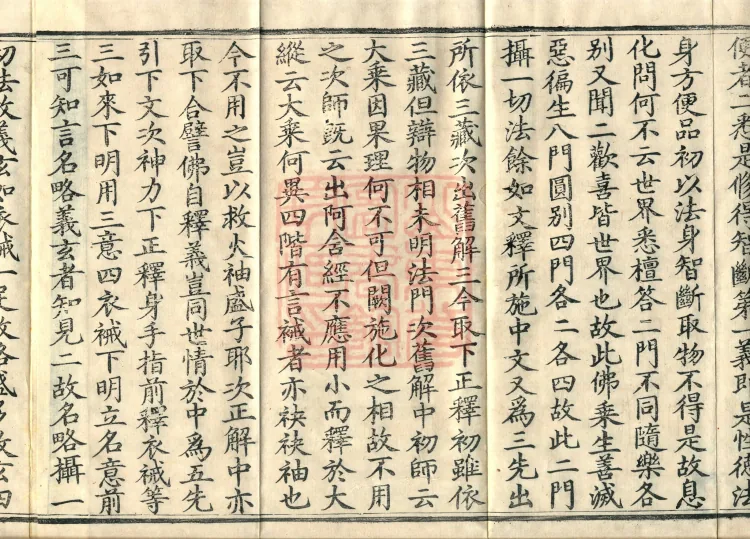 便者二悉是修得智斷第一義即是性德法
身方便品初以法身智斷取物不得是故息
化問何不云世界悉檀答二門不同隨樂各
別又聞二歡喜皆世界也故此佛乘生善滅
惡徧生八門圓別四門各二各四故此二門
攝一切法餘如文釋所施中文又為三先出
所依三藏次出舊解三今取下正釋初雖依
三藏但辯物相未明法門次舊解中初師云
大乘因果理何不可但闕施化之相故不用
之次師既云出阿含經不應用小而釋於大
縱云大乘何異四階有言裓者亦袂袂袖也
今不用之豈以救火袖盛子耶次正解中亦
取下合譬佛自釋義豈同世情於中為五先
引下文次神力下正釋身手指前釋衣裓等
三如來下明用三意四衣裓下明立名意前
三可知言名略義玄者知見二故名略攝一
切法故義玄如衣裓一